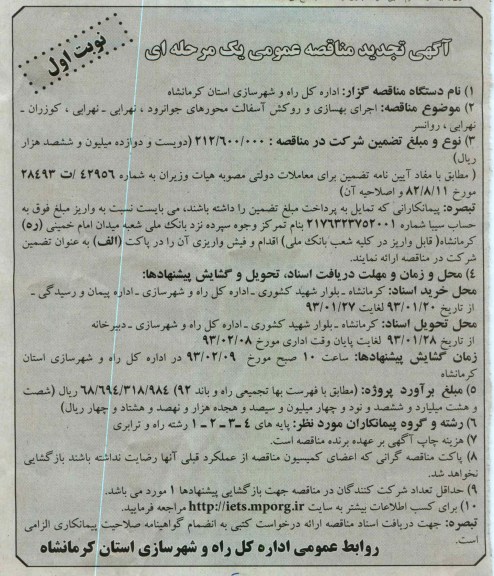 آگهی تجدید مناقصه عمومی یک مرحله ای
نوبت اول
۱) نام دستگاه مناقصه گزار: اداره کل راه و شهرسازی استان کرمانشاه
۲) موضوع مناقصه: اجرای بهسازی و روکش آسفالت محورهای جوانرود ، نهرابی ـ نهرابی ، کوزران ـ
نهرابی ، روانسر
۳) نوع و مبلغ تضمین شرکت در مناقصه : ۲۱۲/۶۰۰/۰۰۰ (دویست و دوازده میلیون و ششصد هزار
ریال)
( مطابق با مفاد آیین نامه تضمین برای معاملات دولتی مصوبه هیات وزیران به شماره ۴۲۹۵۶ /ت ۲۸۴۹۳
مورخ ۸۲/۸/۱۱ و اصلاحیه آن)
تبصره: پیمانکارانی که تمایل به پرداخت مبلغ تضمین را داشته باشند، می بایست نسبت به واریز مبلغ فوق به
حساب سیبا شماره ۲۱۷۶۲۳۷۵۲۰۰۱ بنام تمرکز وجوه سپرده نزد بانک ملی شعبه میدان امام خمینی (ره)
کرمانشاه( قابل واریز در کلیه شعب بانک ملی) اقدام و فیش واریزی آن را در پاکت (الف) به عنوان تضمین
شرکت در مناقصه ارائه نمایند.
۴) محل و زمان و مهلت دریافت اسناد، تحویل و گشایش پیشنهادها:
محل خرید اسناد: کرمانشاه ـ بلوار شهید کشوری ـ اداره کل راه و شهرسازی ـ اداره پیمان و رسیدگی ـ
از تاریخ ۹۳/۰۱/۲۰ لغایت ۹۳/۰۱/۲۷
محل تحویل اسناد: کرمانشاه ـ بلوار شهید کشوری ـ اداره کل راه و شهرسازی ـ دبیرخانه
از تاریخ ۹۳/۰۱/۲۸ لغایت پایان وقت اداری مورخ ۹۳/۰۲/۰۸
زمان گشایش پیشنهادها: ساعت ۱۰ صبح مورخ ۹۳/۰۲/۰۹ در اداره کل راه و شهرسازی استان
کرمانشاه
۵) مبلغ برآورد پروژه: (مطابق با فهرست بها تجمیعی راه و باند ۹۲) ۶۸/۶۹۴/۳۱۸/۹۸۴ ریال (شصت
و هشت میلیارد و ششصد و نود و چهار میلیون و سیصد و هجده هزار و نهصد و هشتاد و چهار ریال)
۶) رشته و گروه پیمانکاران مورد نظر: پایه های ۴ ـ ۳ ـ ۲ ـ ۱ رشته راه و ترابری
۷) هزینه چاپ آگهی بر عهده برنده مناقصه است.
۸) پاکت مناقصه گرانی که اعضای کمیسیون مناقصه از عملکرد قبلی آنها رضایت نداشته باشند بازگشایی
نخواهد شد.
۹) حداقل تعداد شرکت کنندگان در مناقصه جهت بازگشایی پیشنهادها ۱ مورد می باشد.
۱۰) برای کسب اطلاعات بیشتر به سایت http://iets.mporg.ir مراجعه فرمایید.
تبصره: جهت دریافت اسناد مناقصه ارائه درخواست کتبی به انضمام گواهینامه صلاحیت پیمانکاری الزامی
است.
روابط عمومی اداره کل راه و شهرسازی استان کرمانشاه